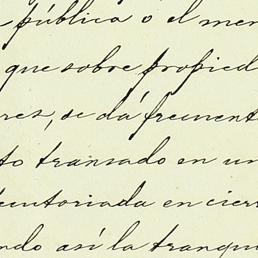 pública o el men
que sobre propied
res, se dá frecuent
to transado en un
cutoriada en cier
ndo así la tranqu